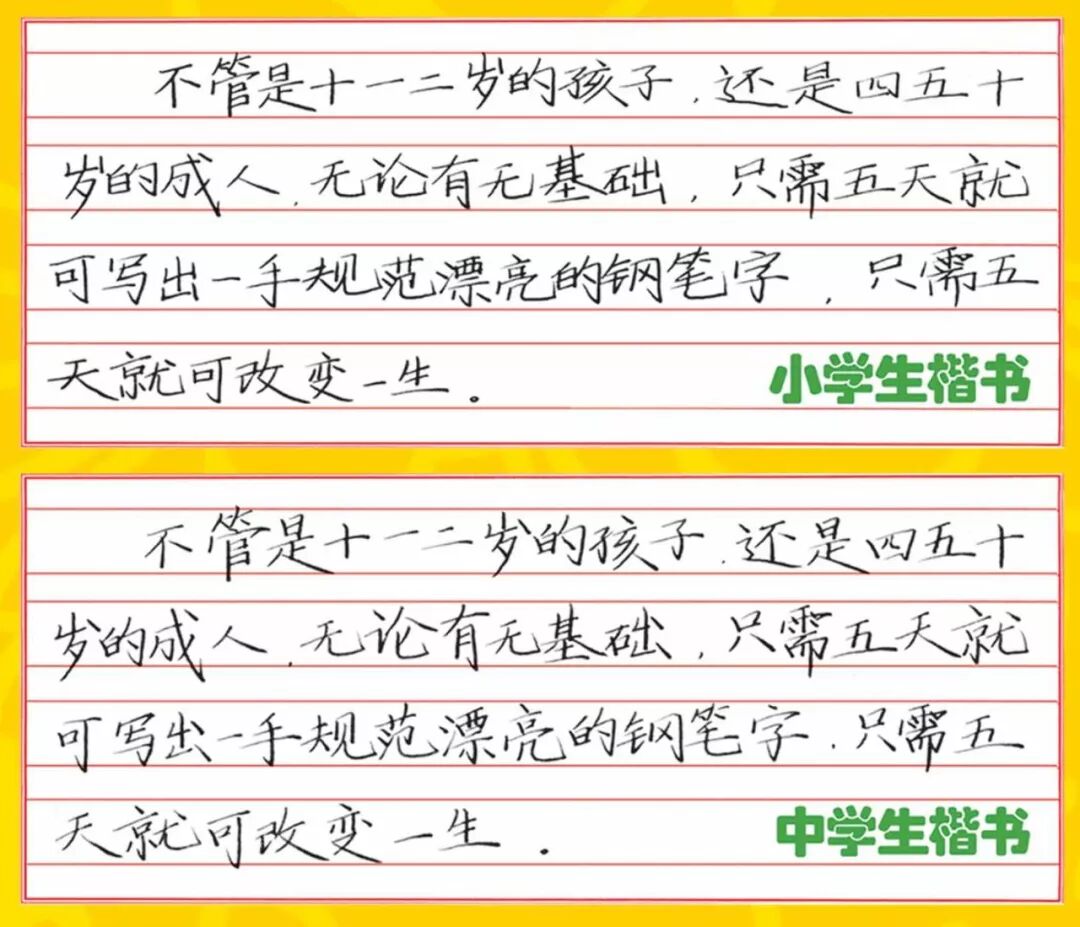 不管是十一二岁的孩子,还是四五十
岁的成人,无论有无基础,只需五天就
可写出一手规范漂亮的钢笔字,只需五
天就可改变一生。
小学生楷书
不管是十一二岁的孩子,还是四五十
岁的成人,无论有无基础,只需五天就
可写出一手规范漂亮的钢笔字.只需五
天就可改变一生.
中学生楷书